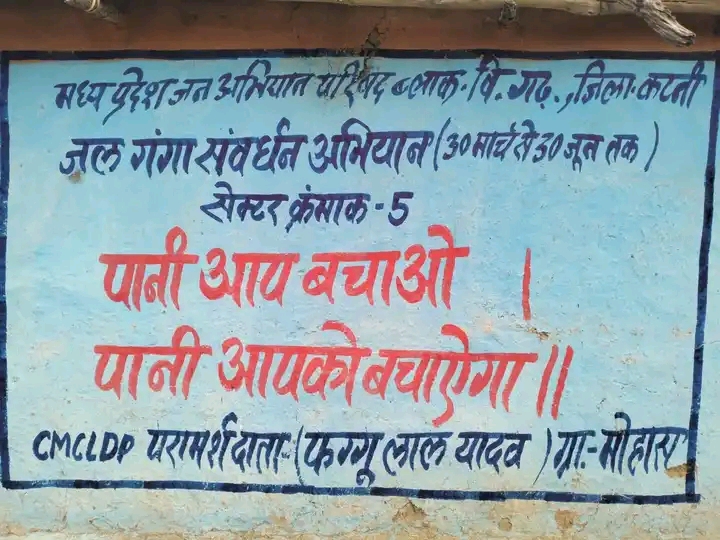 मध्य प्रदेश जन अभियान परिषद ब्लाक- वि. गढ़., जिला- कटनी
जल गंगा संवर्धन अभियान (30 मार्च से 30 जून तक)
सेक्टर क्रंमाक - 5
पानी आप बचाओ ।
पानी आपको बचाऐगा ॥
CMCLDP परामर्शदाता- (फग्गू लाल यादव ) ग्रा.- मोहास